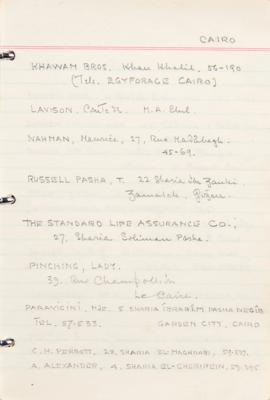 CAIRO
KHAWAM BROS. Khan Khalil, 56-190
(Tele. EGYFORAGE CAIRO)
LAVISON, M.A.
NAHMAN, Maurice, 27, Rue Madabegh.
45-69.
RUSSELL PASHA, T. 22 Sharia Ibn Zanki.
Zamalek,
THE STANDARD LIFE ASSURANCE CO.,
27, Sharia Soliman Pasha.
PINCHING, LADY.
39, Rue Champollion
Le Caire.
PARAVICINI, MDE. 5 SHARIA IBRAHIM PASHA NEGIB
TEL. 57533. GARDEN CITY, CAIRO
C.H. PERROTT, 22, SHARIA EL-MAGHRABI,
A. ALEXANDER, 4, SHARIA